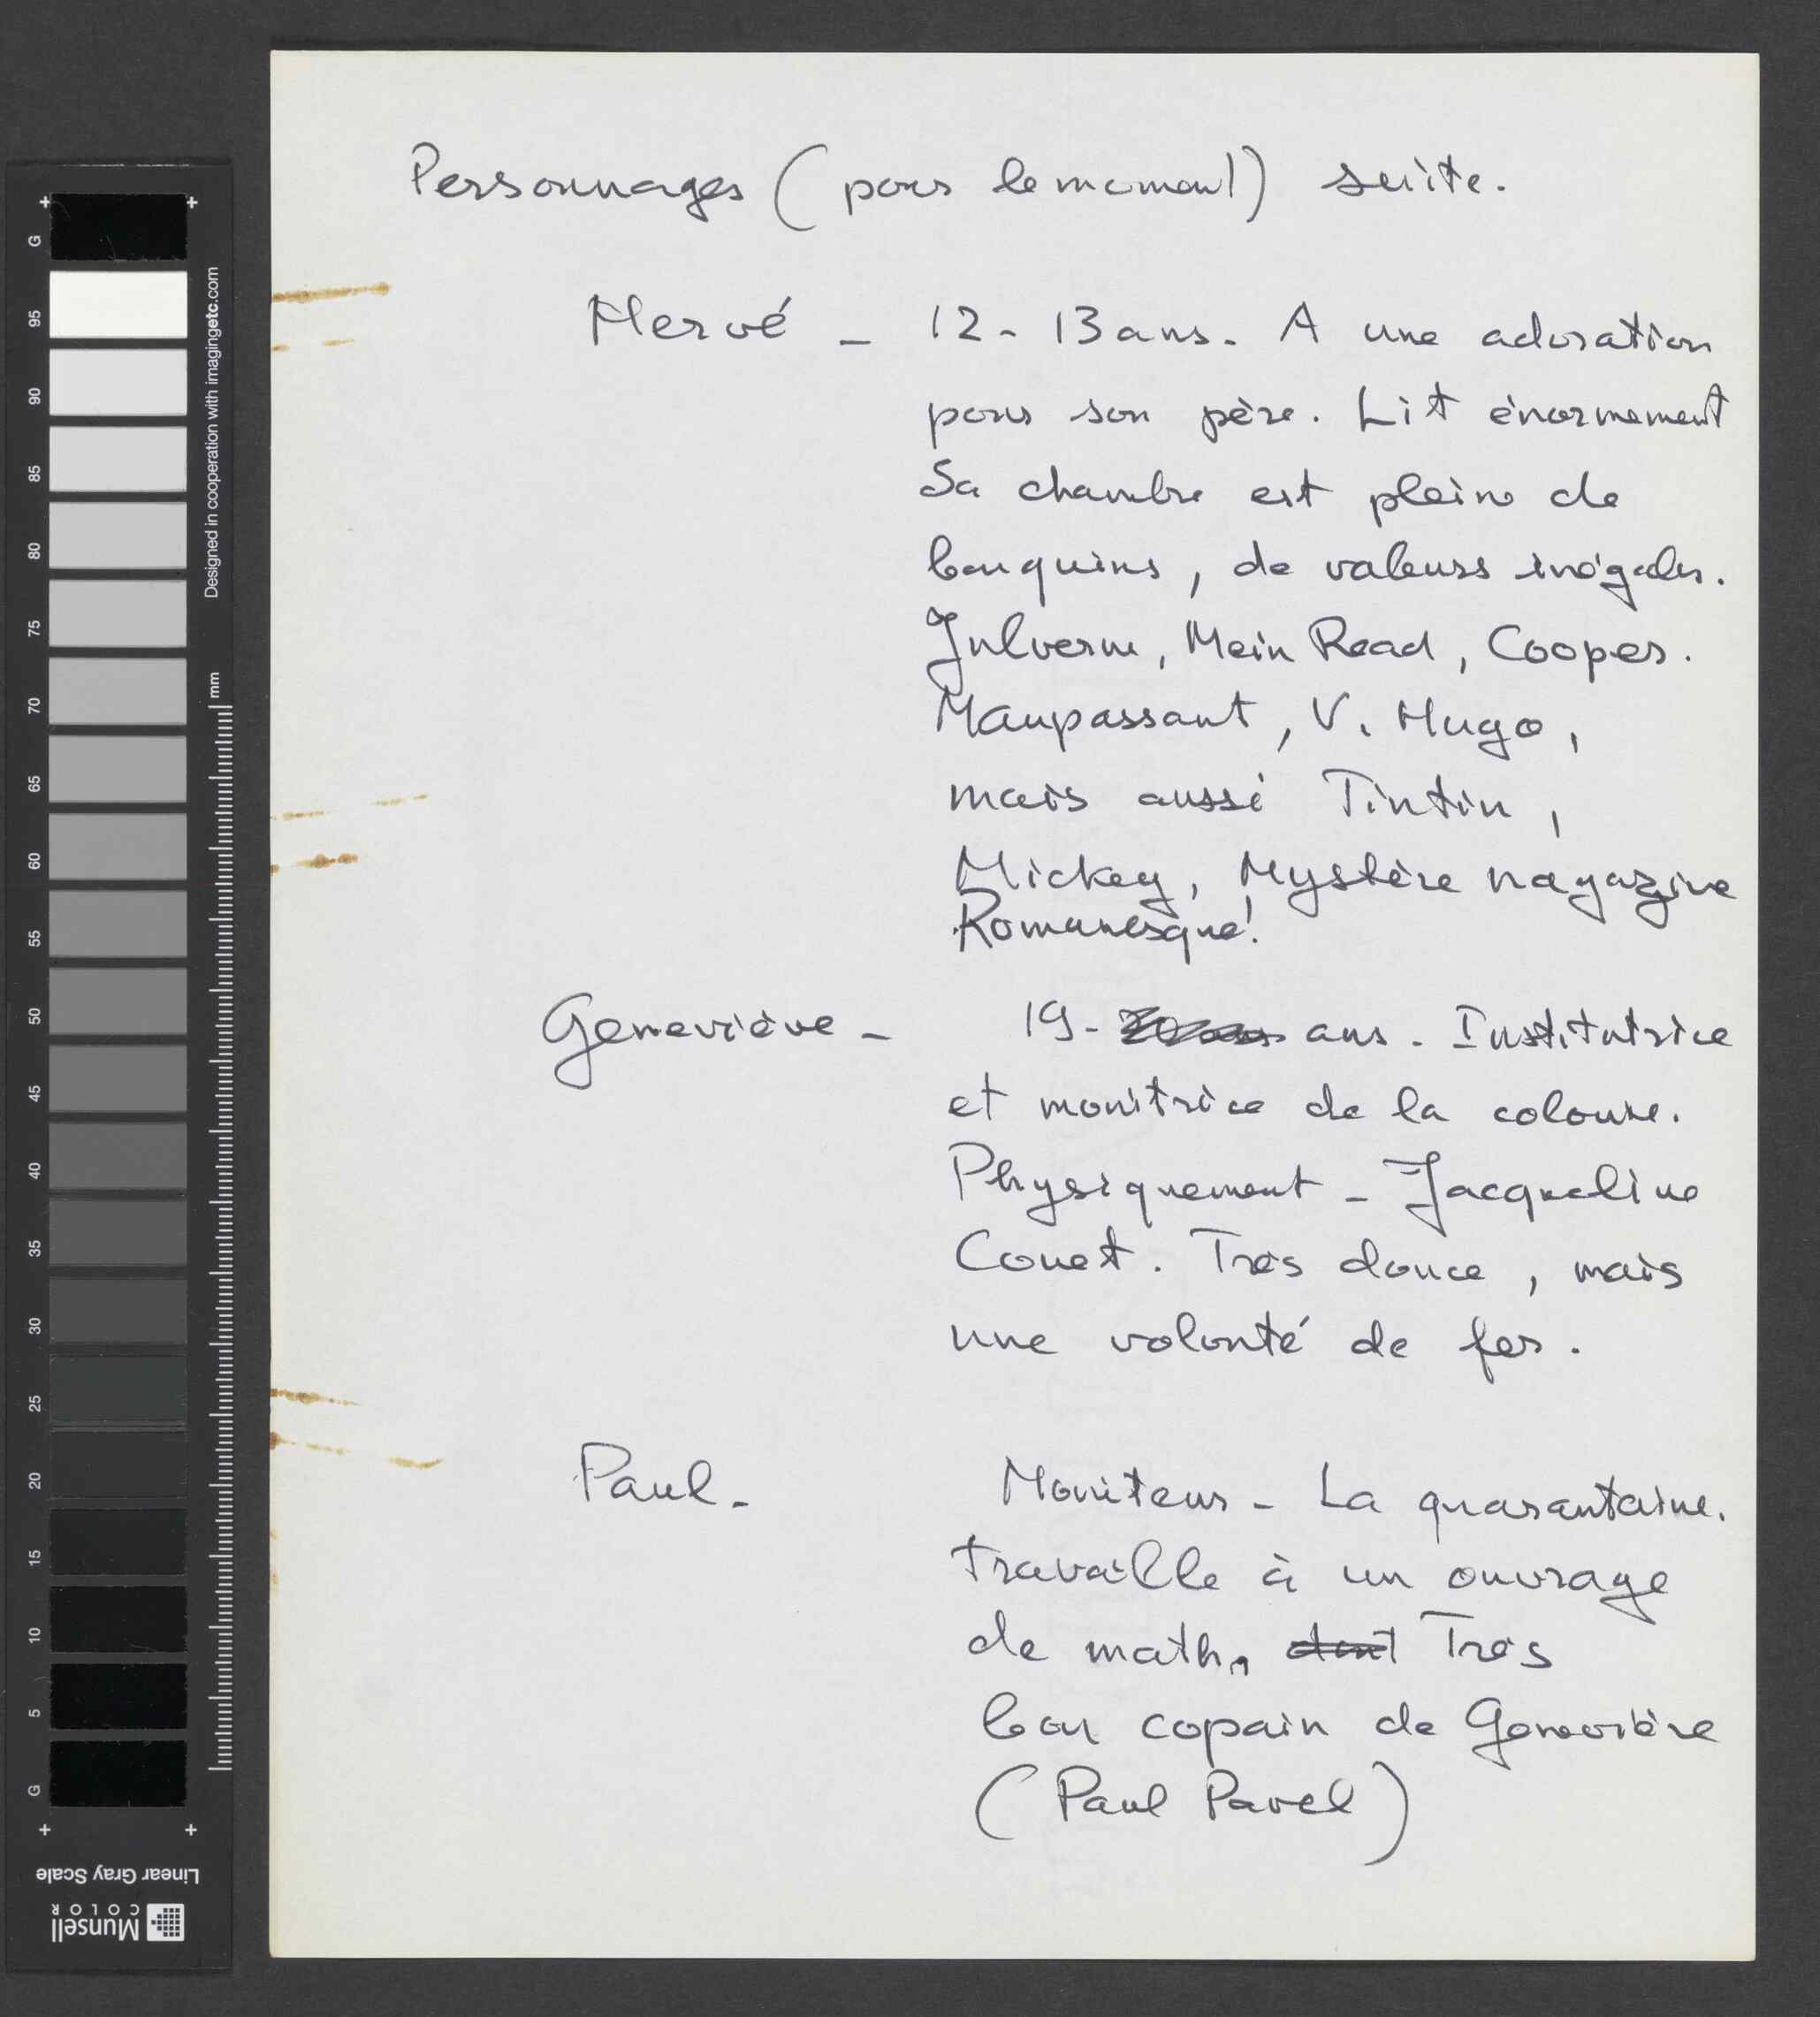 Personnages (pour le moment) suite.
Hervé - 12 - 13 ans. A une adoration
pour son père. Lit énormement
Sa chambre est pleine de
bouquins, de valeurs inégales.
Julverne, Mein Read, Cooper.
Maupassant, V. Hugo,
mais aussi Tintin,
Mickey, Mystère magazine
Romanesque!
Geneviève - 19 - ans. Institutrice
et monitrice de la colonie.
Physiquement - Jacqueline
Couet. Très douce, mais
une volonté de fer.
Paul - Moniteur - La quarantaine.
Travaille à un ouvrage
de math, dont Très
bon copain de Geneviève
(Paul Pavel)
G
95
90
85
80
75
70
65
60
55
50
45
40
35
30
25
20
15
10
5
G
Designed in cooperation with imagingetc.com
mm
Linear Gray Scale
Munsell
COLOR